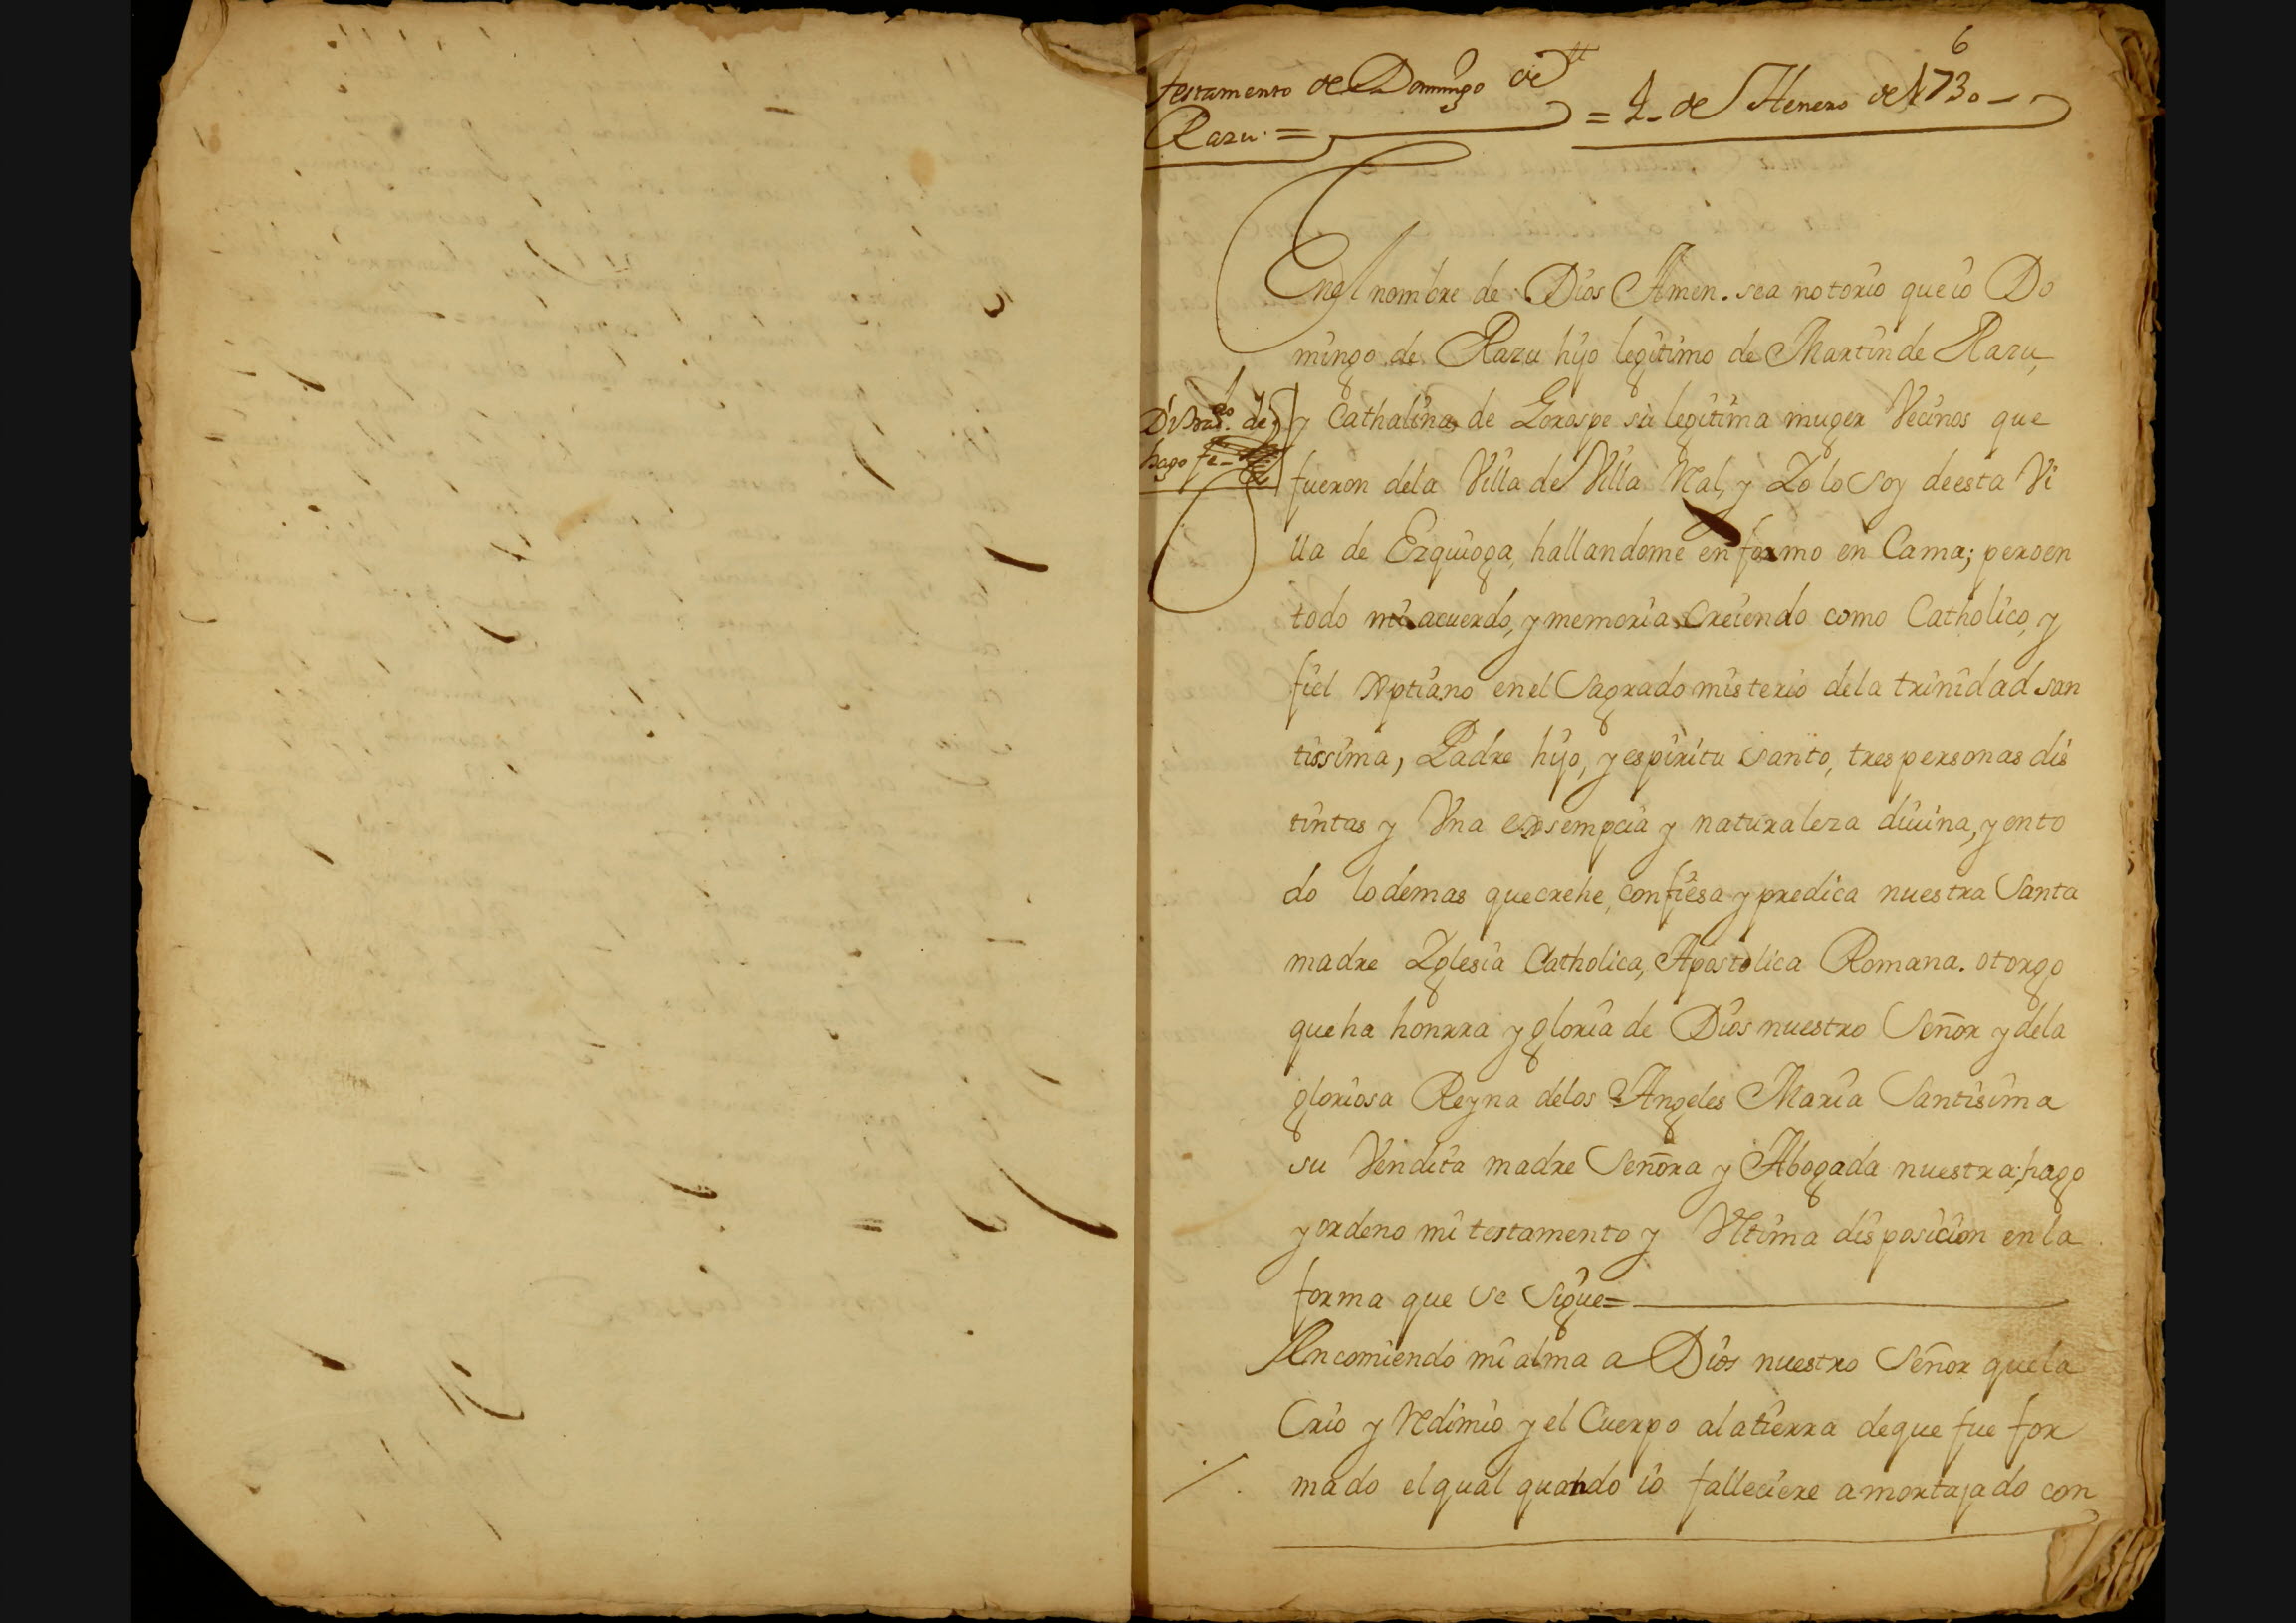 6
Testamento de Domingo de
Razu = = 2 de Henero de 1730
En el nombre de Dios Amen. sea notorio que io Do
mingo de Razu hijo legitimo de Martin de Razu,
y Cathalina de Gorospe su legitima muger Vecinos que
fueron dela Villa de Villa Real, y Yo lo soy de esta Vi
lla de Ezquioga, hallandome enfermo en Cama; pero en
todo mi acuerdo, y memoria Creiendo como Catholico, y
fiel Xptiano en el Sagrado misterio dela trinidad san
tissima, Padre hijo, y espiritu santo, tres personas dis
tintas y Vna essempcia y naturaleza diuina, y en to
do lo demas que crehe, confiesa y predica nuestra Santa
madre Yglesia Catholica, Apostolica Romana. otorgo
que ha honrra y gloria de Dios nuestro Señor y dela
gloriosa Reyna delos Angeles Maria Santisima
su Vendita madre Señora y Abogada nuestra; hago
y ordeno mi testamento y Vltima disposicion en la
forma que se sigue=
Encomiendo mi alma a Dios nuestro Señor que la
Crio y redimio y el Cuerpo ala tierra de que fue for
mado el qual quando io falleciere amortajado con
Di tras.do de
hago fe